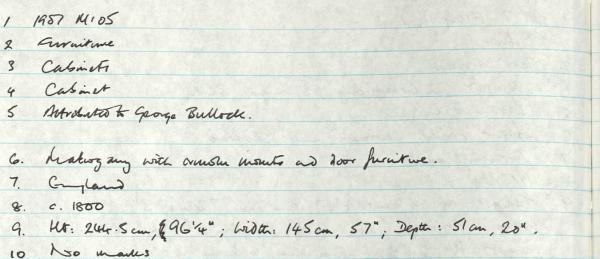 1 1987 M:05
2 Furniture
3 Cabinets
4 Cabinet
5 Attributed to George Bullock.
6. Mahogany with ormolu mounts and door furniture.
7. England
8. c. 1800
9. Ht: 244.5cm, 96¼"; Width: 145cm, 57"; Depth: 51cm, 20".
10 No marks